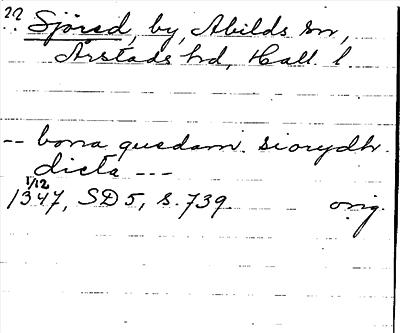 22. Sjörød, by, Abilds sn,
Årstads hd, Hall. l.
-- bona quedam. siorydh.
dicta ---
1/12
1347, SD 5, s. 739. orig.